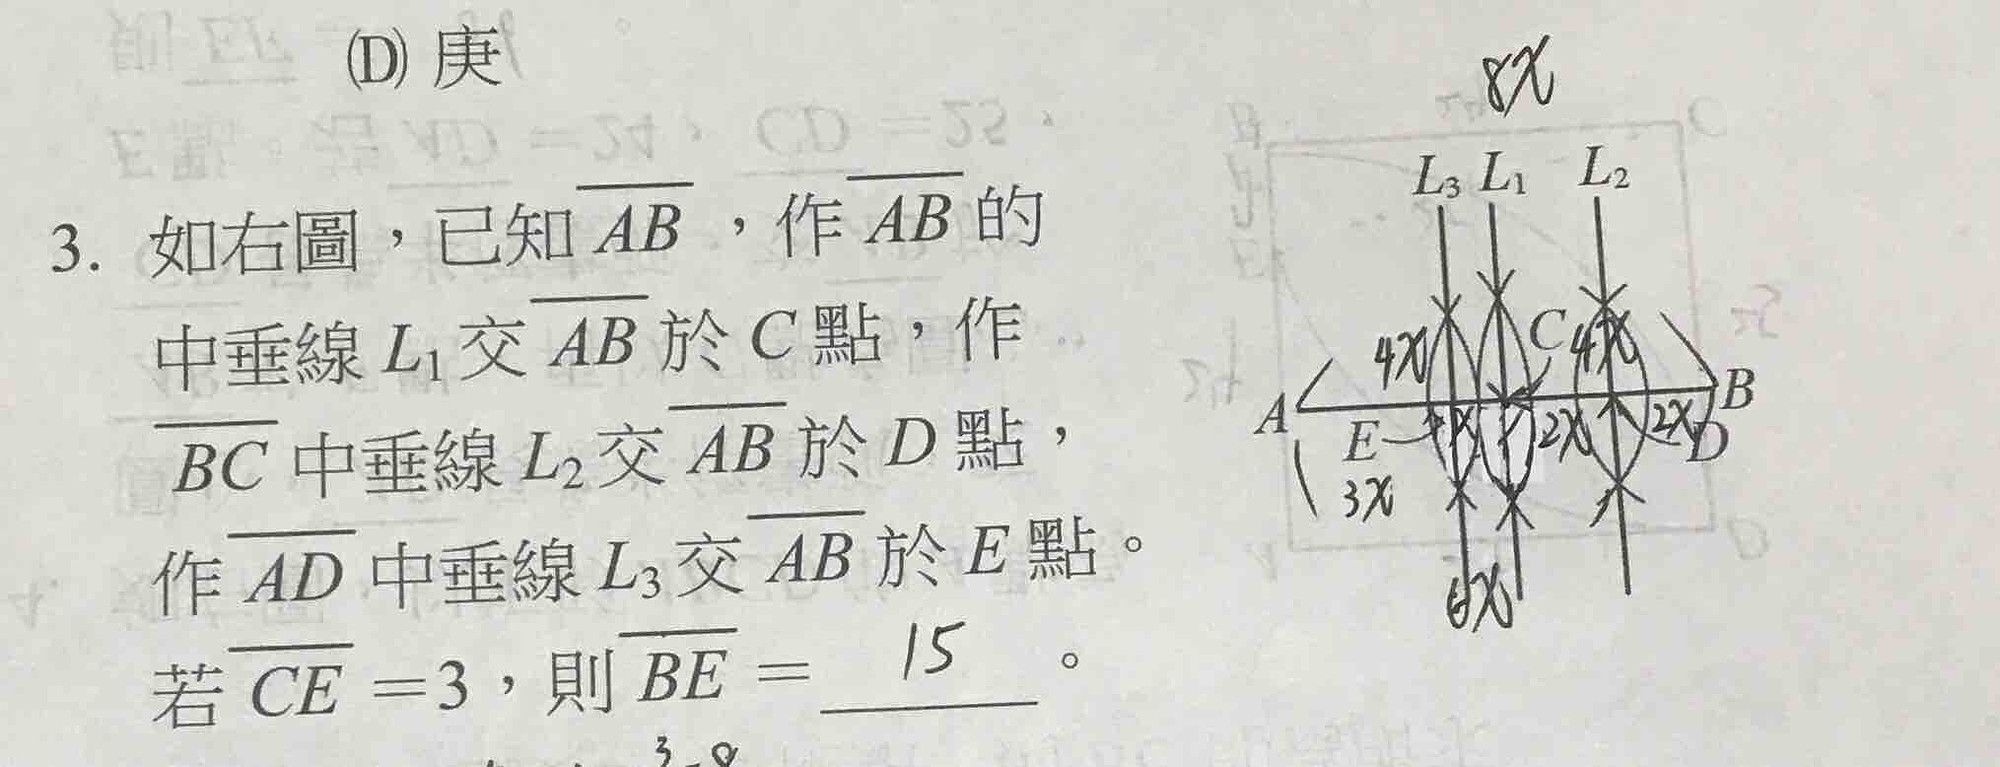 (D) 庚
3. 如右圖，已知 AB ，作 AB 的
中垂線 L₁ 交 AB 於 C 點，作
BC 中垂線 L₂ 交 AB 於 D 點，
作 AD 中垂線 L₃ 交 AB 於 E 點。
若 CE =3，則 BE = 15 。
8x
L₃ L₁ L₂
4x C 4x
A B
E x 2x 2x D
3x
6x